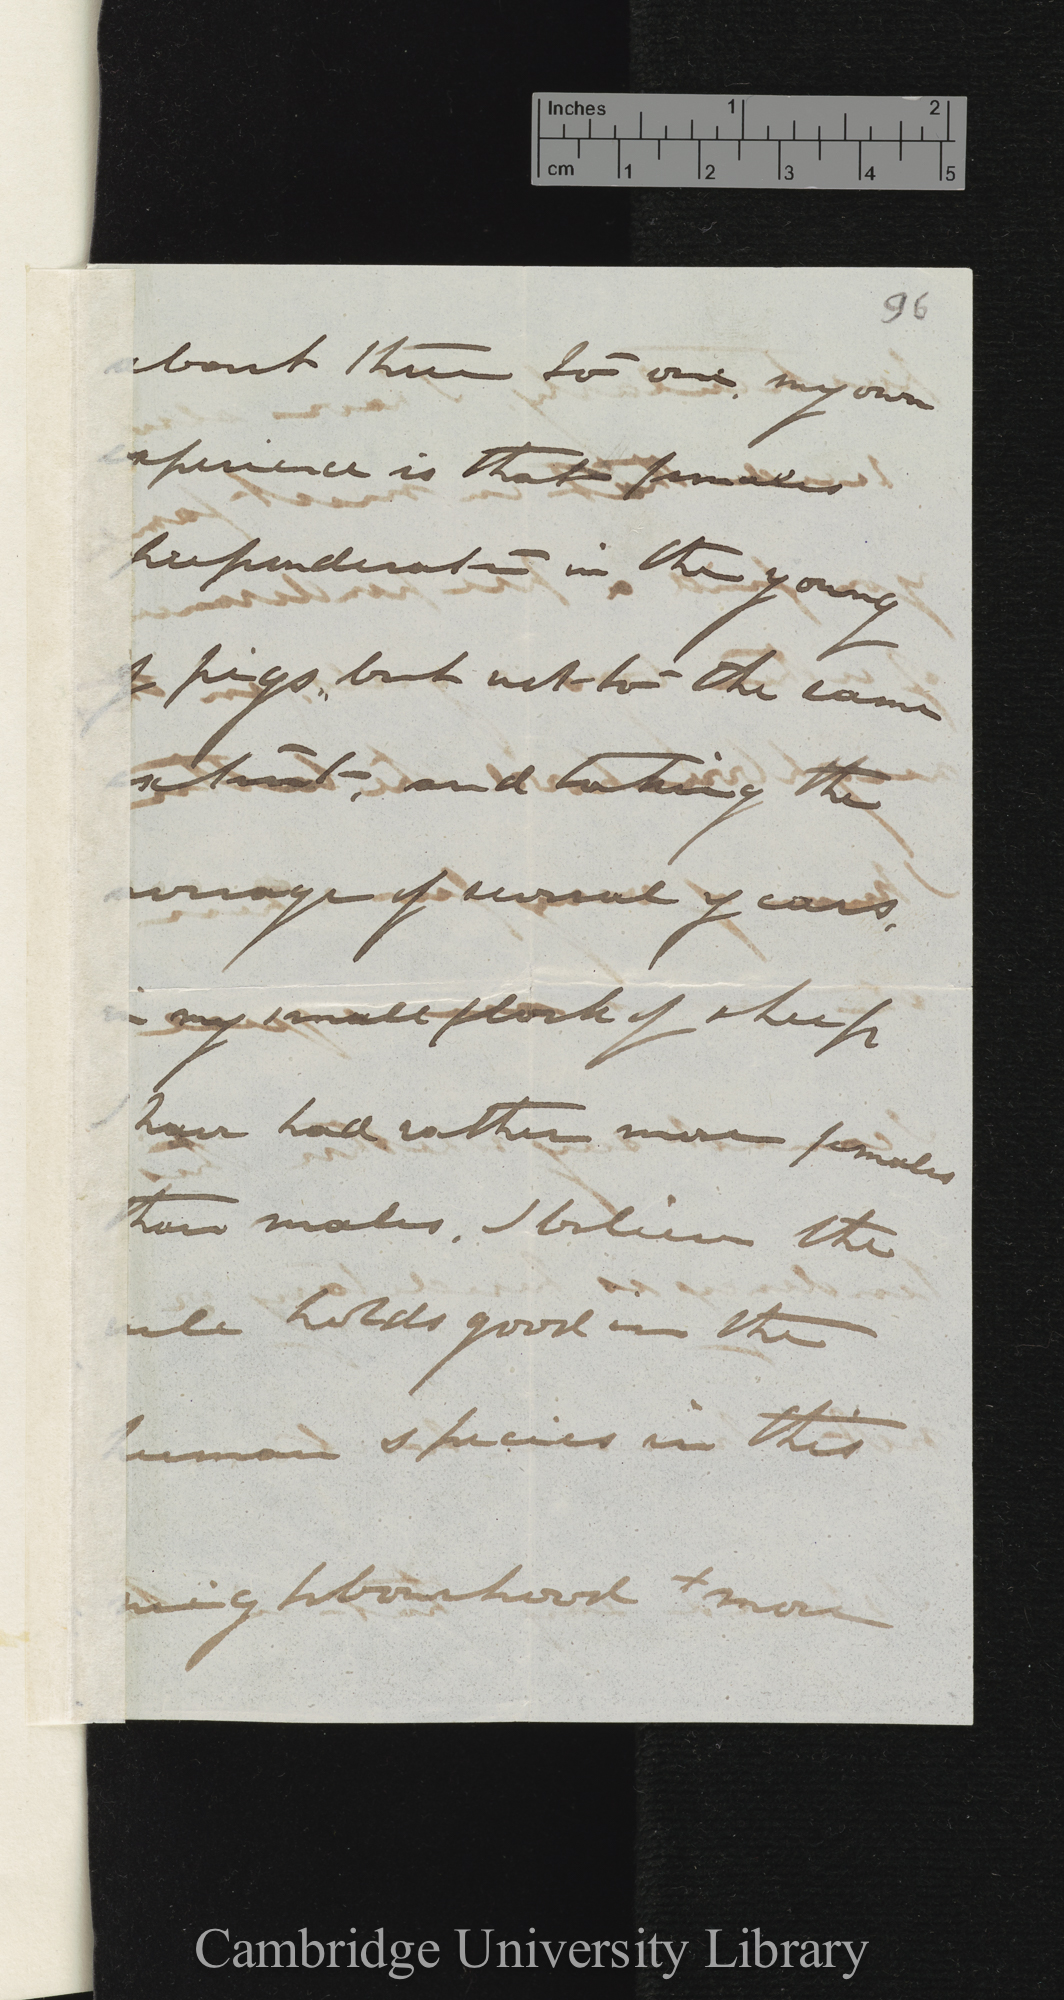 Inches 1 2
cm 1 2 3 4 5
96
about three to one, my own
experience is that females
preponderate in the young
of pigs, but not to the same
extent, and taking the
average of several years,
in my small flock of sheep
have had rather more females
than males, I believe the
rule holds good in the
human species in this
neighbourhood + more
Cambridge University Library